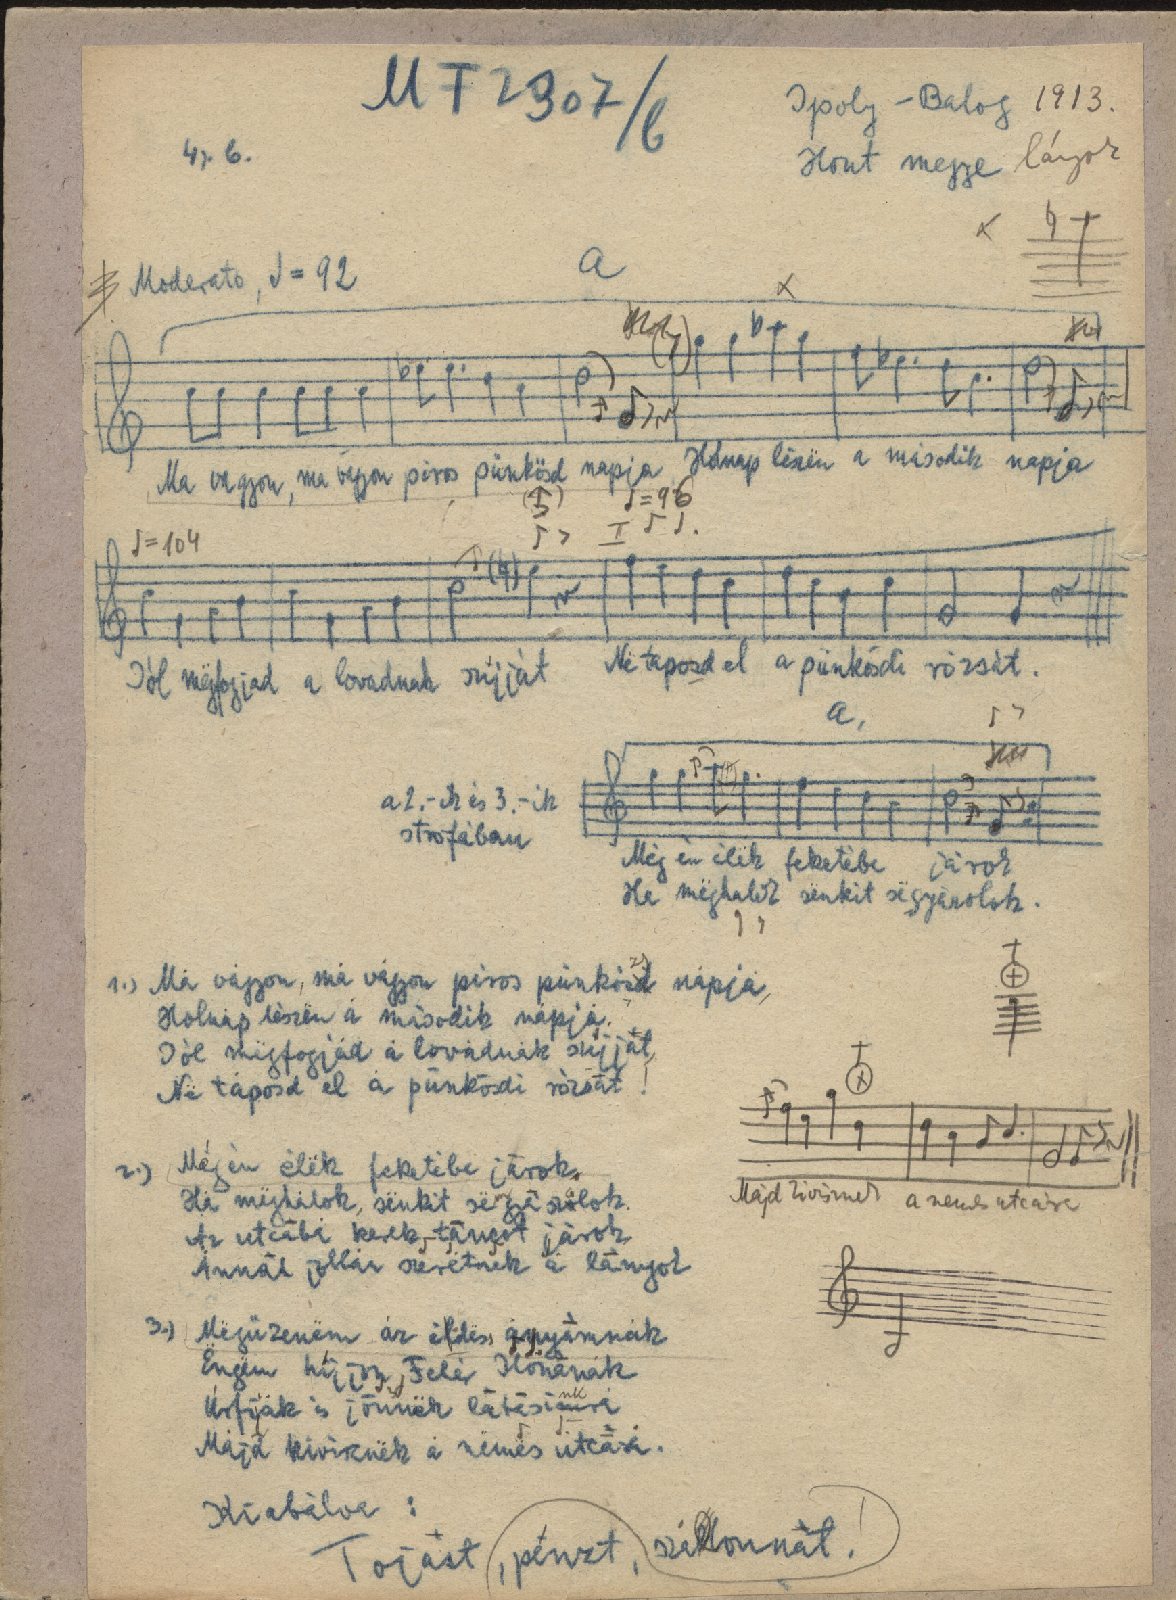 MF 2907/b
Ipoly-Balog 1913.
4). b.
Hont megye lányok
Moderato, ♩= 92
a
Ma vagyon, ma vagyon piros pünkösd napja Holnap lészën a második napja
♩=96
♩=104
I
Jól mëgfogjad a lovadnak szíjját Në taposd el a pünkösdi rózsát.
a,
a 2.-ik és 3.-ik
strófában
Míg én élëk feketébe járok
Ha mëghalok sënkit së gyászolok.
1.) Ma vagyon, ma vagyon piros pünkösd napja,
Holnap lészën a második napja.
Jól mëgfogjád a lovadnak szíjját,
Në taposd el a pünkösdi rózsát!
2.) Míg én élëk feketébe járok,
Ha mëghalok, sënkit së gyászolok.
Az utcába kerek táncot járok
Annál jobban szeretnek a lányok
Májd kivisznek a nemes utcára
3.) Mëgüzeném az édës anyámnak
Engëm híjjon Fehér Ilonának
Úrfiják is jönnek látásimra
Májd kivisznëk a nëmës utcára.
Kiabálva:
Tojást, pénzt, szalonnát!